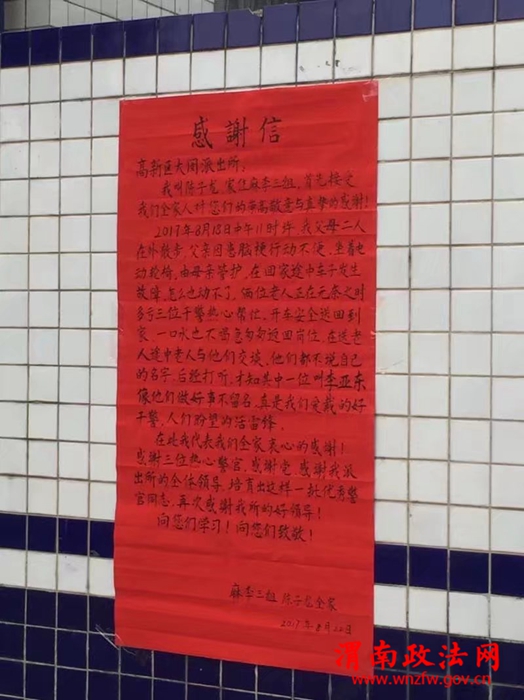 感謝信
高新区大闫派出所:
我叫陈子龙,家住麻李三组,首先接受
我们全家人对您们的崇高敬意与真挚的感谢!
2017年8月18日中午11时许,我父母二人
在外散步,父亲因患脑梗行动不便,坐着电
动轮椅,由母亲管护,在回家途中车子发生
故障,怎么也动不了。俩位老人正在无奈之时
多亏三位干警热心帮忙,开车安全送回到
家,一口水也不喝急匆匆返回岗位,在送老
人途中老人与他们交谈,他们都不说自己
的名字,后经打听,才知其中一位叫李亚东
像他们做好事不留名,真是我们爱戴的好
干警,人们盼望的活雷锋。
在此我代表我们全家衷心的感谢!
感谢三位热心警官,感谢党,感谢我派
出所的全体领导,培育出这样一批优秀警
官同志,再次感谢我所的好领导!
向您们学习!向您们致敬!
麻李三组 陈子龙全家
2017年8月20日
渭南政法网
www.wnzfw.gov.cn